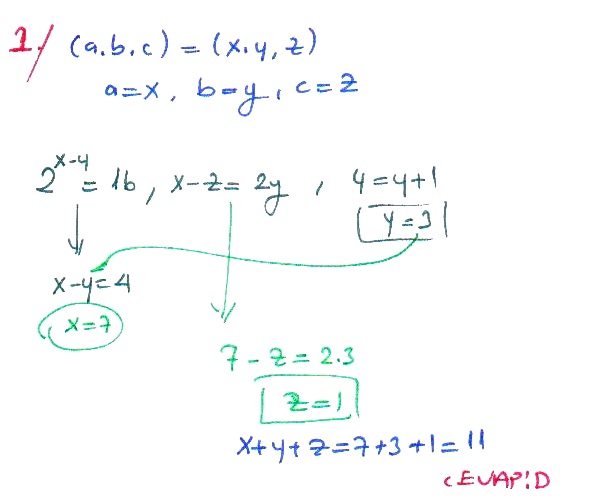 1/ (a,b,c) = (x,y,z)
a=x, b=y, c=z
2^(x-y) = 16, x-z = 2y, 4 = y+1
y=3
x-y=4
x=7
7 - z = 2.3
z=1
x+y+z=7+3+1=11
CEVAP:D